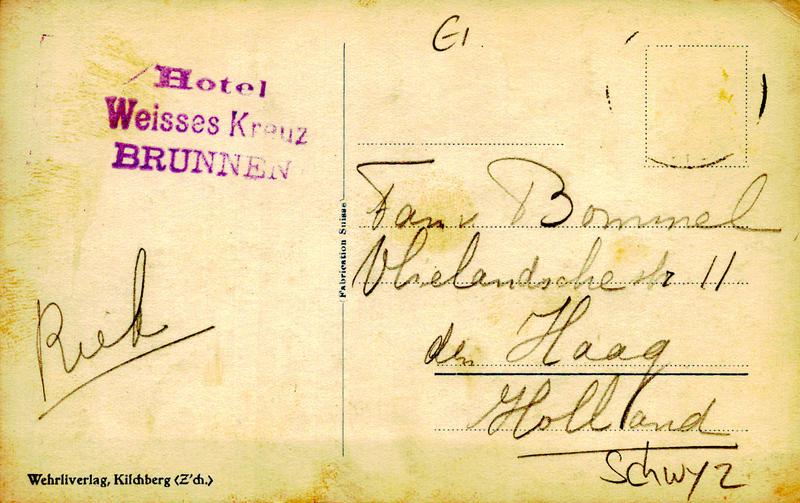 G1.
Hotel
Weisses Kreuz
BRUNNEN
Fabrication Suisse
Fam v Bommel
Vlielandsche str 11
den Haag
Holland
Riek
Schwyz
Wehrliverlag, Kilchberg (Z'ch.)